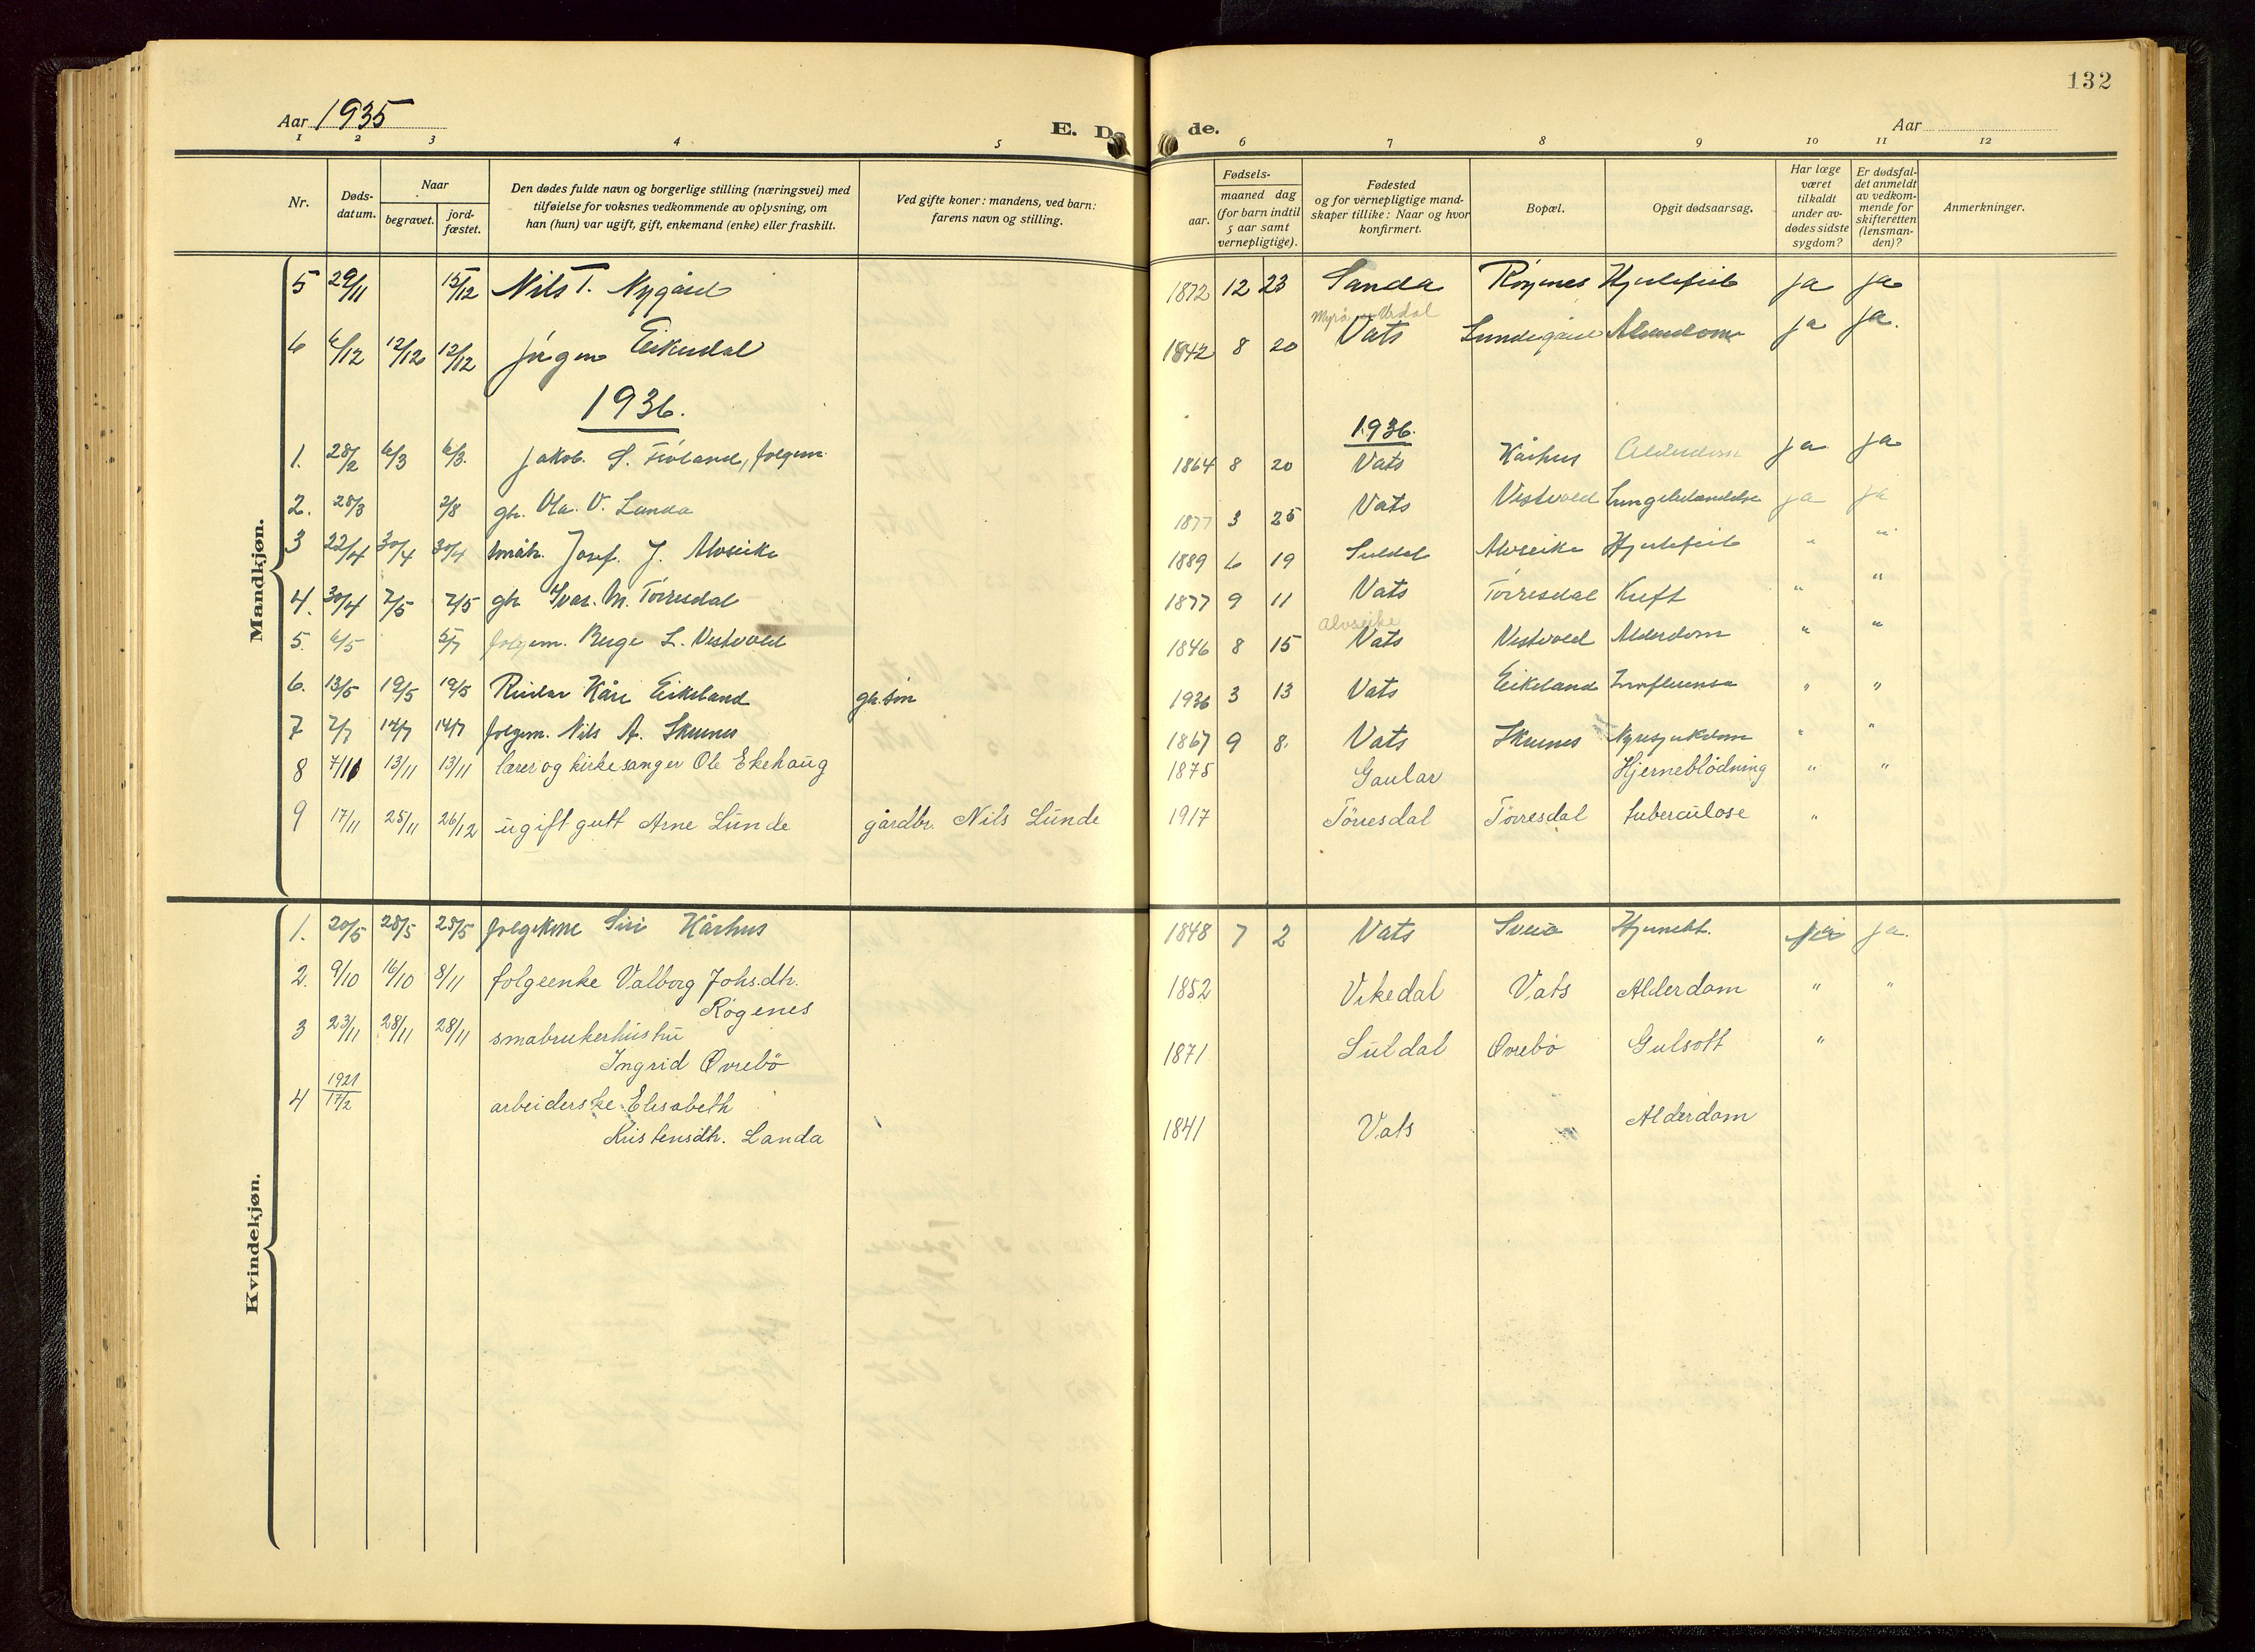 132
Aar 1935
E. D
de.
Aar
1 2 3 4 5 6 7 8 9 10 11 12
Nr.
Døds-datum.
Naar
begravet.
jord-fæstet.
Den dødes fulde navn og borgerlige stilling (næringsvei) med
tilføielse for voksnes vedkommende av oplysning, om
han (hun) var ugift, gift, enkemand (enke) eller fraskilt.
Ved gifte koner: mandens, ved barn:
farens navn og stilling.
Fødsels-
aar.
maaned dag
(for barn indtil
5 aar samt
vernepligtige).
Fødested
og for vernepligtige mand-
skaper tillike: Naar og hvor
konfirmert.
Bopæl.
Opgit dødsaarsag.
Har læge
været
tilkaldt
under av-
dødes sidste
sygdom?
Er dødsfal-
det anmeldt
av vedkom-
mende for
skifteretten
(lensman-
den)?
Anmerkninger.
Mandkjøn.
5 29/11 15/12 Nils T. Nygård 1872 12 23 Sanda Røgenes Hjertefeil ja ja
6 6/12 12/12 12/12 Jørgen Eikedal 1842 8 20 Vats Lundegård Alderdom ja ja.
1936.
1936.
1. 28/2 6/3 6/3. Jakob. S. Fioland, folgem. 1864 8 20 Vats Kårhus Alderdom ja ja
2. 28/3 2/8 gbr. Ola. V. Landa 1877 3 25 Vats Vestvold Lungebetændelse ja ja
3 22/4 30/4 30/4 småbr. Josef. J. Alvseike 1889 6 19 Suldal Alvseike Hjertefeil " "
4. 30/4 7/5 7/5 gbr Ivar. M. Tørresdal 1877 9 11 Vats Tørresdal Kreft " "
Alvseike
5. 6/5 5/7 folgem. Berge L. Vestvold 1846 8 15 Vats Vestvold Alderdom " "
6. 13/5 19/5 19/5 Reidar Kåre Eikeland gb. søn 1936 3 13 Vats Eikeland Innfluensa " "
7 7/7 14/7 14/7 folgem. Nils A. Skeines 1867 9 8. Vats Skeines Nyresjukdom " "
8 7/11 13/11 13/11 lærer og kirkesanger Ole Ekehaug 1875 Gaular Hjerneblødning " "
9 17/11 25/11 26/12 ugift gutt Arne Lunde gårdbr. Nils Lunde 1917 Tørresdal Tørresdal tuberculose "
Kvindekjøn.
1. 20/5 28/5 28/5 folgekone Siri Kårhus 1848 7 2 Vats Sveio Hjernebl. ja ja.
2. 9/10 16/10 8/11 folgeenke Valborg Johs.dtr.
Røgenes 1852 Vikedal Vats Alderdom " "
3 23/11 28/11 28/11 småbrukerhustru
Ingrid Øvrebø 1871 Suldal Øvrebø Gulsott "
4 1921 17/2 arbeiderske Elisabeth
Kristensdtr. Landa 1841 Vats Alderdom